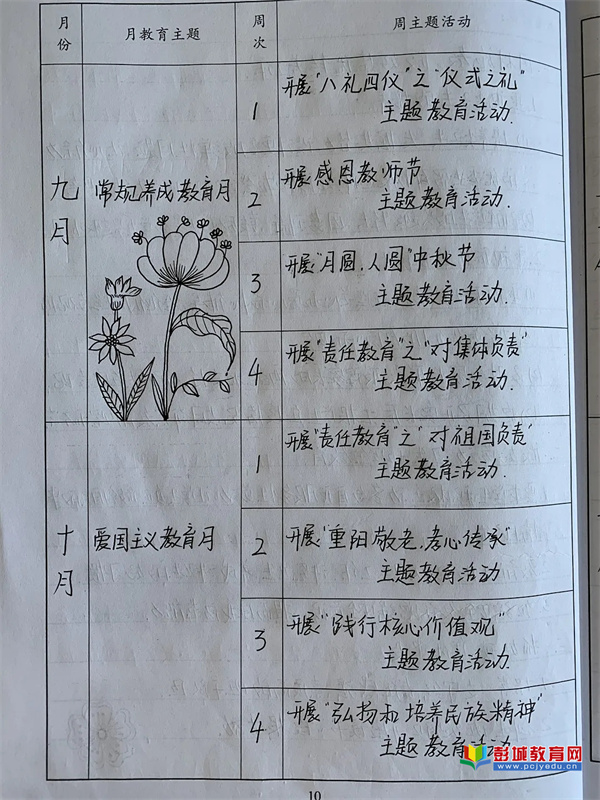 月份
月教育主题
周次
周主题活动
九月
常规养成教育月
1
开展“八礼四仪”之“仪式之礼”
主题教育活动.
2
开展感恩教师节
主题教育活动.
3
开展“月圆,人圆”中秋节
主题教育活动.
4
开展“责任教育”之“对集体负责”
主题教育活动.
十月
爱国主义教育月
1
开展“责任教育”之“对祖国负责”
主题教育活动.
2
开展“重阳敬老,孝心传承”
主题教育活动
3
开展“践行核心价值观”
主题教育活动.
4
开展“弘扬和培养民族精神”
主题教育活动.
10
彭城教育网
www.pcjyedu.cn